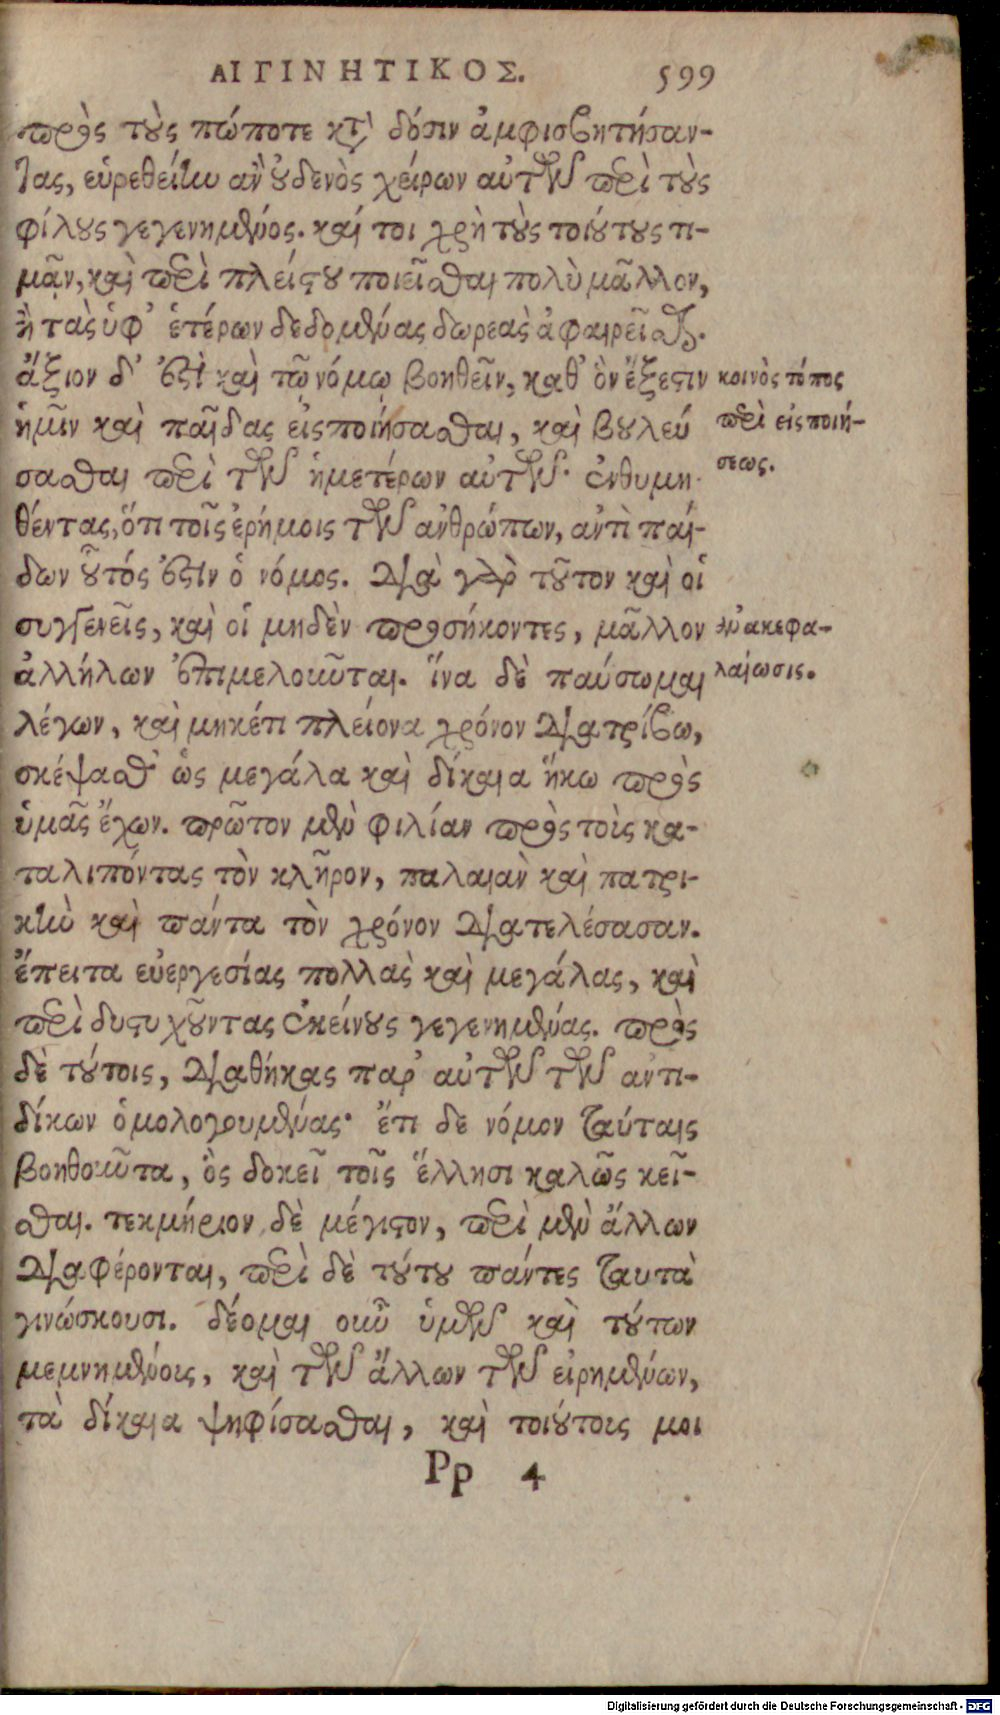 ΑΙΓΙΝΗΤΙΚΟΣ. 599
πρὸς τοὺς πώποτε κατὰ δόσιν ἀμφισβητήσαν-
τας, εὑρεθείην ἂν οὐδενὸς χείρων αὐτῶν περὶ τοὺς
φίλους γεγενημένος. καί τοι χρὴ τοὺς τοιούτους τι-
μᾶν, καὶ περὶ πλείστου ποιεῖσθαι πολὺ μᾶλλον,
ἢ τὰς ὑφ' ἑτέρων δεδομένας δωρεὰς ἀφαιρεῖσθαι.
ἄξιον δ' ἐστὶ καὶ τῷ νόμῳ βοηθεῖν, καθ' ὃν ἔξεστιν
κοινὸς τόπος
ἡμῖν καὶ παῖδας εἰσποιήσασθαι, καὶ βουλεύ
περὶ εἰσποιή-
σασθαι περὶ τῶν ἡμετέρων αὐτῶν· ἐνθυμη-
σεως.
θέντας, ὅτι τοῖς ἐρήμοις τῶν ἀνθρώπων, ἀντὶ παί-
δων οὗτός ἐστιν ὁ νόμος. διὰ γὰρ τοῦτον καὶ οἱ
συγγενεῖς, καὶ οἱ μηδὲν προσήκοντες, μᾶλλον
ἀνακεφα-
ἀλλήλων ἐπιμελοῦνται. ἵνα δὲ παύσωμαι
λαίωσις.
λέγων, καὶ μηκέτι πλείονα χρόνον διατρίβω,
σκέψασθ' ὡς μεγάλα καὶ δίκαια ἥκω πρὸς
ὑμᾶς ἔχων. πρῶτον μὲν φιλίαν πρὸς τοὺς κα-
ταλιπόντας τὸν κλῆρον, παλαιὰν καὶ πατρι-
κὴν καὶ πάντα τὸν χρόνον διατελέσασαν.
ἔπειτα εὐεργεσίας πολλὰς καὶ μεγάλας, καὶ
περὶ δυστυχοῦντας ἐκείνους γεγενημένας. πρὸς
δὲ τούτοις, διαθήκας παρ' αὐτῶν τῶν ἀντι-
δίκων ὁμολογουμένας· ἔτι δε νόμον ταύταις
βοηθοῦντα, ὃς δοκεῖ τοῖς ἕλλησι καλῶς κεῖ-
σθαι. τεκμήριον δὲ μέγιστον, περὶ μὲν ἄλλων
διαφέρονται, περὶ δὲ τούτου πάντες ταυτὰ
γινώσκουσι. δέομαι οὖν ὑμῶν καὶ τούτων
μεμνημένοις, καὶ τῶν ἄλλων τῶν εἰρημένων,
τὰ δίκαια ψηφίσασθαι, καὶ τοιούτοις μοι
Pp 4
Digitalisierung gefördert durch die Deutsche Forschungsgemeinschaft - DFG